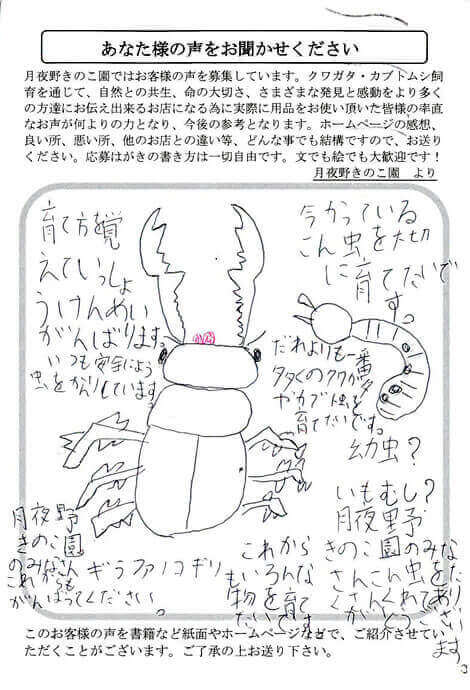 あなた様の声をお聞かせください
月夜野きのこ園ではお客様の声を募集しています。クワガタ・カブトムシ飼
育を通じて、自然との共生、命の大切さ、さまざまな発見と感動をより多く
の方達にお伝え出来るお店になる為に実際に用品をお使い頂いた皆様の率直
なお声が何よりの力となり、今後の参考となります。ホームページの感想、
良い所、悪い所、他のお店との違い等、どんな事でも結構ですので、お送り
ください。応募はがきの書き方は一切自由です。文でも絵でも大歓迎です！
月夜野きのこ園　より
育て方を覚
えていっしょ
うけんめい
がんばります。
いつも安全によう
虫をかんりしています。
今かっている
こん虫を大切
に育てたいで
す。
だれよりも一番
多くのクワガタ
やカブト虫を
育てたいです。
幼虫？
いもむし？
月夜野
きのこ園
のみなさん
これからも
がんばってください。
ギラファノコギリ
これから
もいろんな
物を育て
たいです。
月夜野
きのこ園のみな
さんこん虫をた
くさんくれてあり
がとうございい
ます。
このお客様の声を書籍など紙面やホームページなどで、ご紹介させてい
ただくことがございます。ご了承の上お送り下さい。